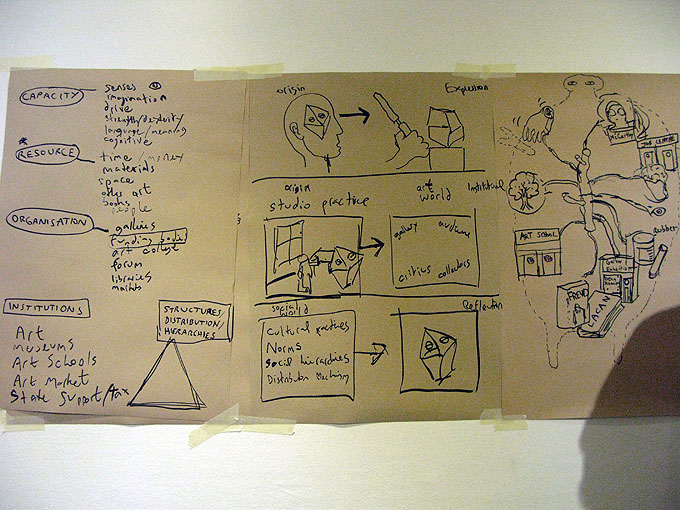 CAPACITY
senses
imagination
drive
strength/dexterity
language/meaning
cognitive
RESOURCE
time / money
materials
space
other art
books
people
ORGANISATION
galleries
funding bodies
art college
forum
libraries
INSTITUTIONS
Art
museums
Art Schools
Art Market
State Support/tax
STRUCTURES
DISTRIBUTION/
HIERARCHIES
origin
Expression
origin
studio practice
art
world
Institutional
gallery
audience
critics
collectors
social
world
Reflection
Cultural practices
Norms
Social hierarchies
Distribution Machinery
McCarthy
JOB CENTRE
ART SCHOOL
Rubber
FREUD
LACAN